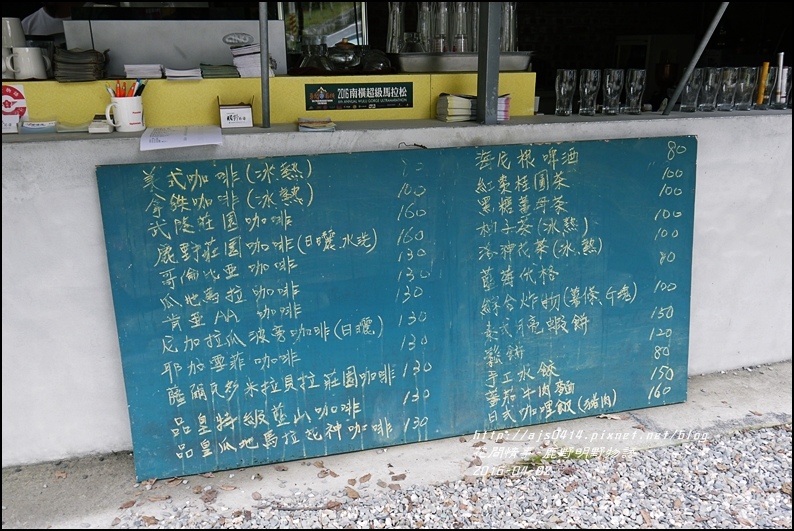 2016南橫超級馬拉松
6TH ANNUAL WULU GORGE ULTRAMARATHON
美式咖啡(冰熱)
拿鐵咖啡(冰熱) 100
武陵莊園咖啡 160
鹿野莊園咖啡(日曬.水洗) 160
哥倫比亞咖啡 130
瓜地馬拉咖啡 130
肯亞AA咖啡 130
尼加拉瓜波旁咖啡(日曬) 130
耶加雪菲咖啡
薩爾瓦多米拉貝拉莊園咖啡 130
品皇特級藍山咖啡 130
品皇瓜地馬拉花神咖啡 130
海尼根啤酒 80
紅棗桂圓茶 100
黑糖薑母茶 100
柚子茶(冰熱) 100
洛神花茶(冰.熱) 100
藍莓優格 80
綜合炸物(薯條、雞塊) 100
泰式月亮蝦餅 150
鬆餅 120
手工水餃 80
蕃茄牛肉麵 150
日式咖哩飯(豬肉) 160
http://ajs0414.pixnet.net/blog
鹿野明野物語